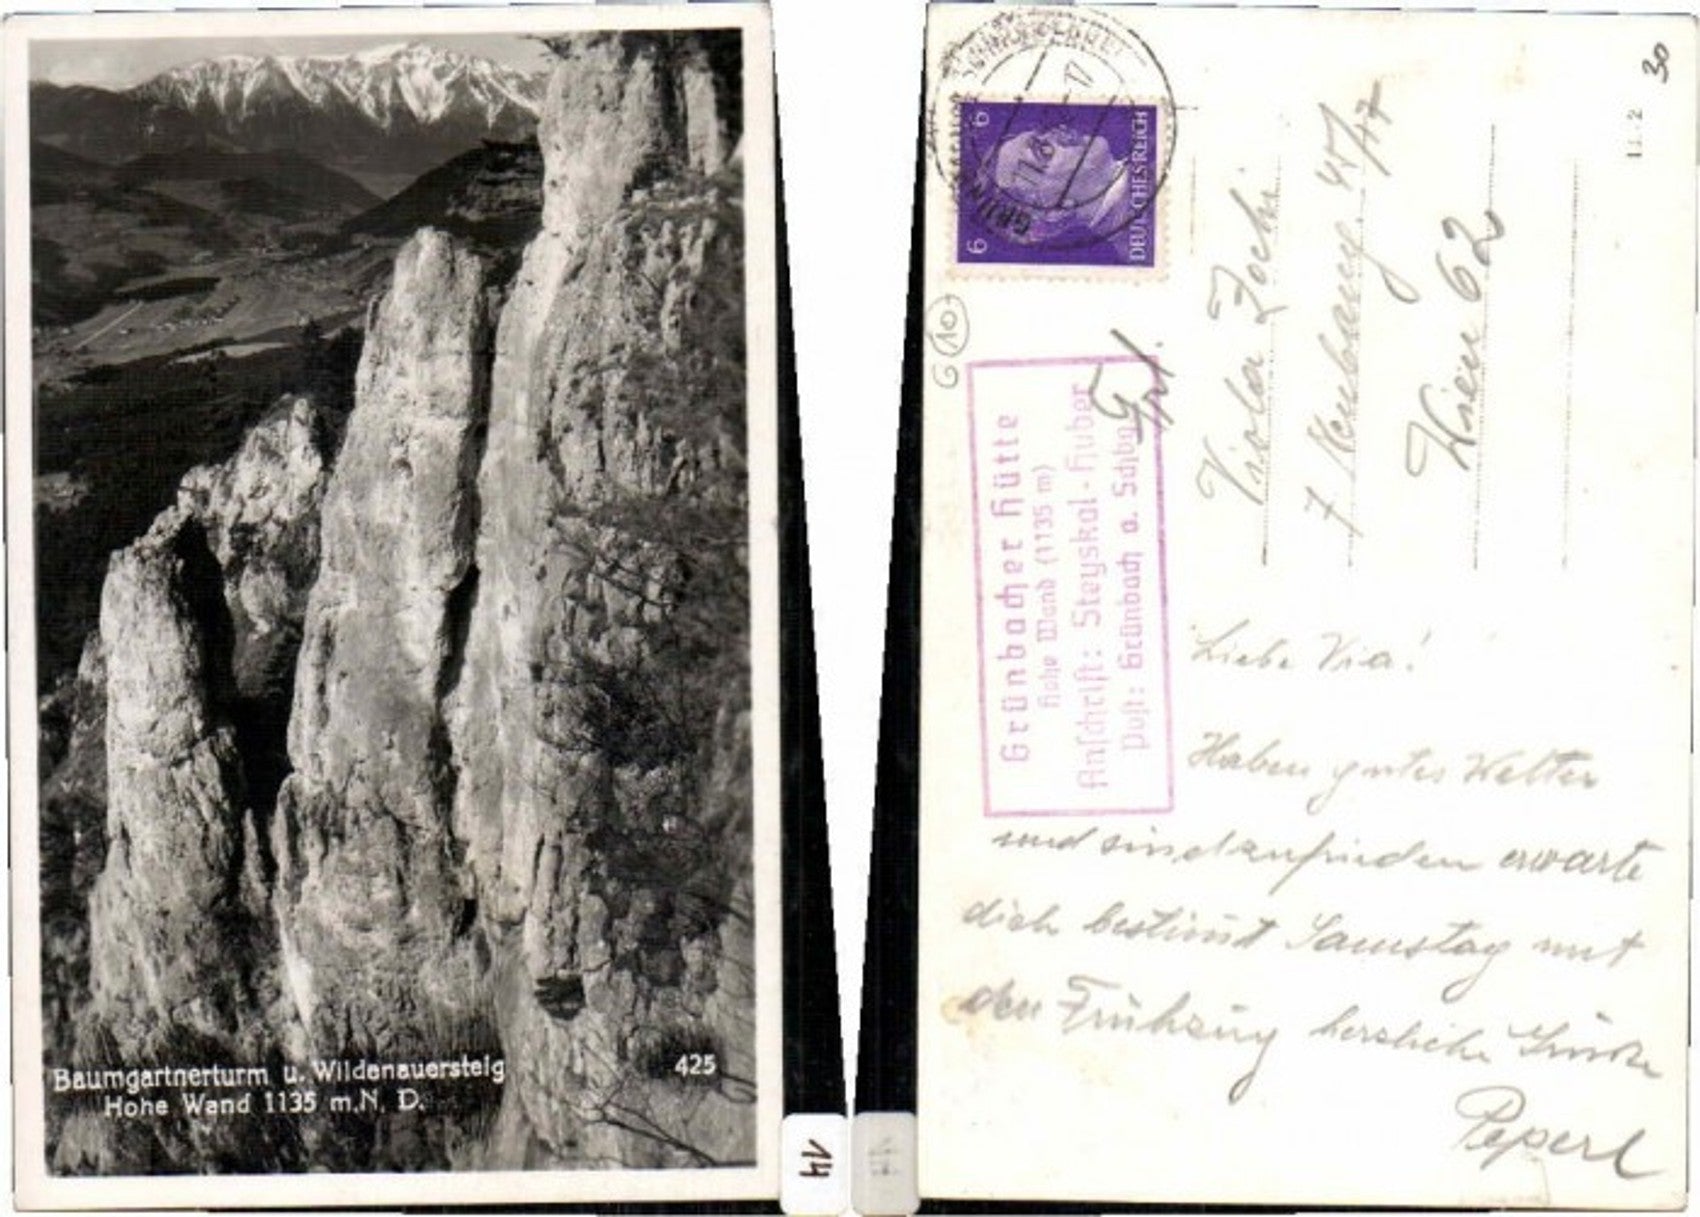 Baumgartnerturm u. Wildenauersteig
Hohe Wand 1135 m.N. D.
425
14
30
6
6
DEUTSCHES REICH
10
Grünbacher Hütte
Hohe Wand (1135 m)
Anschrift: Steyskal-Huber
Post: Grünbach a. Schbg
Frl.
Viola
7
Wien 62
Liebe Via!
Haben gutes Wetter
und sind zufrieden erwarte
dich bestimt Samstag mit
den Frühzug herzliche Grüße
Peperl